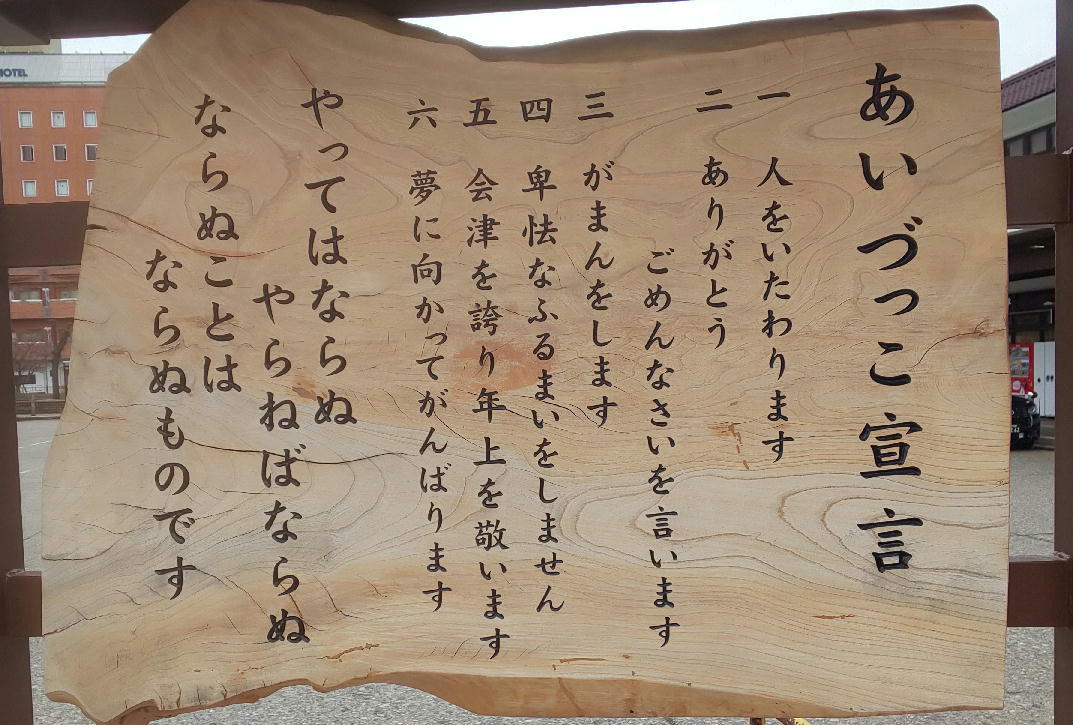 あいづっこ宣言
一 人をいたわります
二 ありがとう
ごめんなさいを言います
三 がまんをします
四 卑怯なふるまいをしません
五 会津を誇り年上を敬います
六 夢に向かってがんばります
やってはならぬ
やらねばならぬ
ならぬことは
ならぬものです
HOTEL